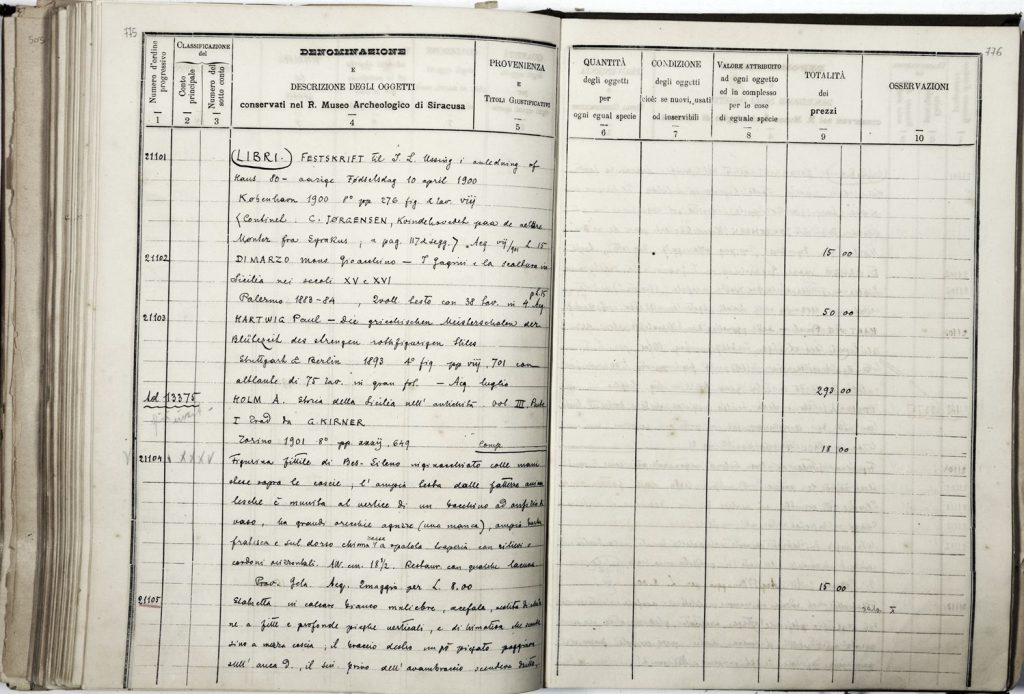 505
775
Numero d'ordine progressivo
CLASSIFICAZIONE
del
Conto principale
Numero del sotto conto
DENOMINAZIONE
E
DESCRIZIONE DEGLI OGGETTI
conservati nel R. Museo Archeologico di Siracusa
PROVENIENZA
E
TITOLI GIUSTIFICATIVI
1 2 3 4 5
21101 (LIBRI.) FESTSKRIFT til J. L. Ussing i anledning af
Hans 80- aarige Fødselsdag 10 april 1900
København 1900 8° pp 276 fig. e tav. viij
(Contiene: C. JØRGENSEN, paa de
Monter fra Syrakus, a pag. 117 e segg.) Acq. L. 15
21102 DI MARZO mons Gioacchino — I Gagini e la scultura in
Sicilia nei secoli XV e XVI
Palermo 1883-84, 2 voll testo con 38 tav. in 4°
21103 HARTWIG Paul — Die griechischen Meisterschalen der
Blüthezeit des strengen rothfigurigen Stiles
Stuttgart & Berlin 1893 4° fig pp viij. 701 con
atlante di 75 tav. in gran fol. — Acq. luglio
Ad 13375 HOLM A. Storia della Sicilia nell' antichità. vol III. Parte
I Trad da G. KIRNER
Torino 1901 8° pp 649 Comp
21104 Figurina fittile di Bes-Sileno inginocchiato colle mani
stese sopra le coscie; l'ampia testa dalle fattezze
è munita al vertice di un bocchino ad
vaso, ha grandi orecchie aguzze (una manca), ampia barba
e sul dorso
cordoni orizzontali. Alt. cm. 18½. Restaur. con qualche lacuna.
Prov. Gela. Acq. 2 maggio per L. 8.00
21105 Statuetta in calcare bianco muliebre, acefala, vestita di
ne a fitte e profonde pieghe verticali, e di himation che scende
sino a mezza coscia; il braccio destro un pò piegato poggiava
sull' anca d., il sin. privo dell' avambraccio scendeva
776
QUANTITÀ
degli oggetti
per
ogni egual specie
6
CONDIZIONE
degli oggetti
cioè: se nuovi, usati
od inservibili
7
VALORE ATTRIBUITO
ad ogni oggetto
ed in complesso
per le cose
di eguale specie
8
TOTALITÀ
dei
prezzi
9
OSSERVAZIONI
10
15 00
50 00
293 00
18 00
15 00
X